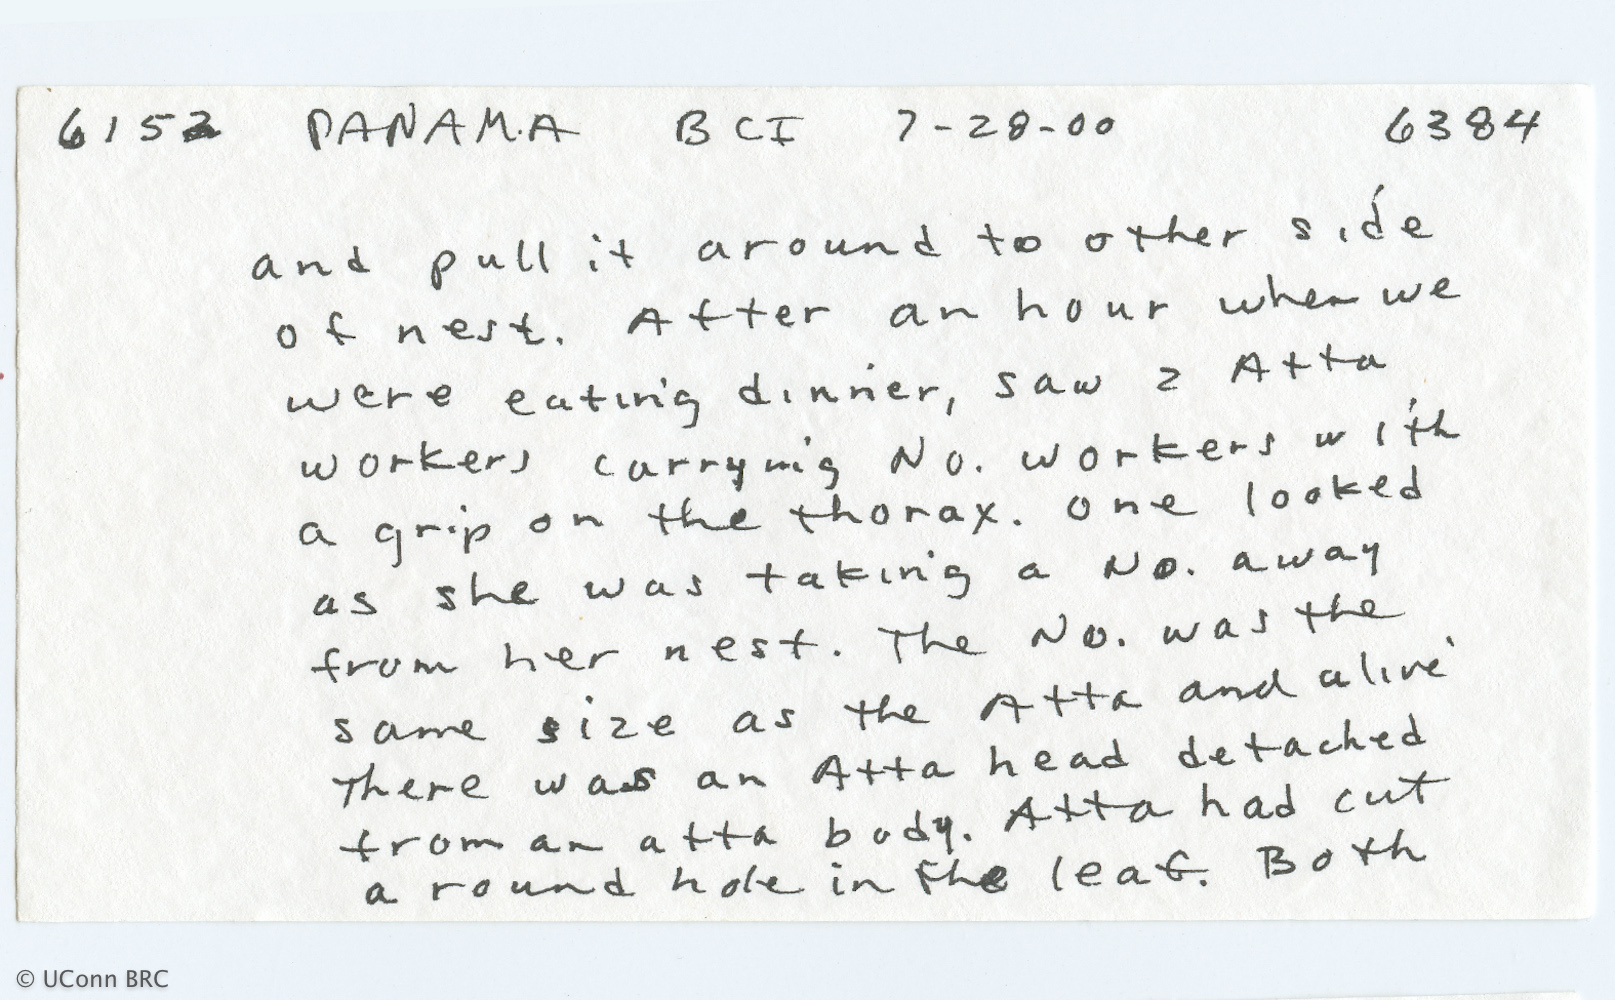 6152 PANAMA BCI 7-28-00 6384
and pull it around to other side
of nest. After an hour when we
were eating dinner, saw 2 Atta
workers carrying No. workers with
a grip on the thorax. One looked
as she was taking a No. away
from her nest. The No. was the
same size as the Atta and alive
There was an Atta head detached
from an atta body. Atta had cut
a round hole in the leaf. Both
© UConn BRC